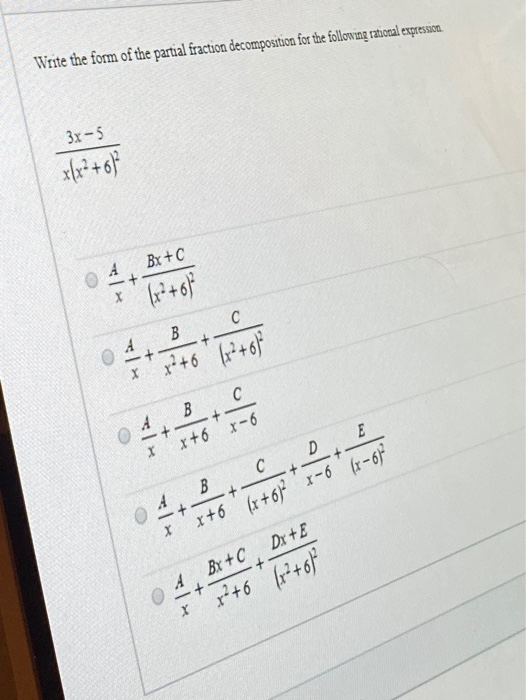 Write the form of the partial fraction decomposition for the following rational expression.
3x-5
x(x²+6)²
A/x + Bx+C/(x²+6)²
A/x + B/x²+6 + C/(x²+6)²
A/x + B/x+6 + C/x-6
A/x + B/x+6 + C/(x+6)² + D/x-6 + E/(x-6)²
A/x + Bx+C/x²+6 + Dx+E/(x²+6)²